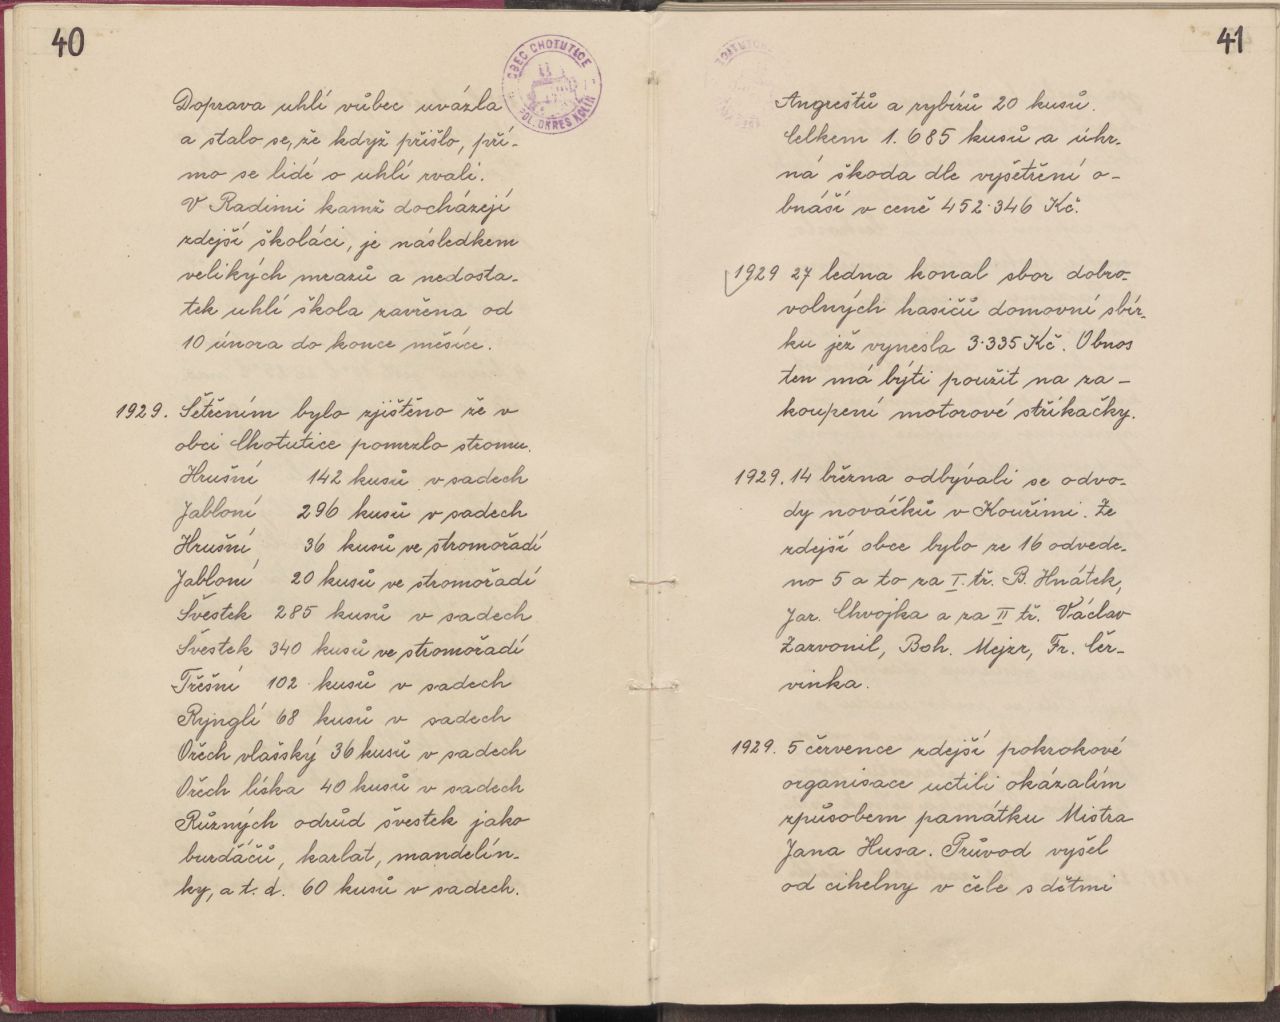 40
OBEC CHOTUTICE
POL. OKRES KOLÍN
Doprava uhlí vůbec uvázla
a stalo se, že když přišlo, pří-
mo se lidé o uhlí rvali.
V Radimi kamž docházejí
zdejší školáci, je následkem
velikých mrazů a nedosta-
tek uhlí škola zavřena od
10 února do konce měsíce.
1929. Šetřením bylo zjištěno že v
obci Chotutice pomrzlo stromu.
Hrušní 142 kusů v sadech
Jabloní 296 kusů v sadech
Hrušní 36 kusů ve stromořadí
Jabloní 20 kusů ve stromořadí
Švestek 285 kusů v sadech
Švestek 340 kusů ve stromořadí
Třešní 102 kusů v sadech
Rynglí 68 kusů v sadech
Ořech vlašský 36 kusů v sadech
Ořech líska 40 kusů v sadech
Různých odrůd švestek jako
burdáčů, karlat, mandelín-
ky, a t. d. 60 kusů v sadech.
41
Angreštů a rybízů 20 kusů.
Celkem 1.685 kusů a úhr-
ná škoda dle vyšetření o-
bnáší v ceně 452.346 Kč.
1929 27 ledna konal sbor dobro-
volných hasičů domovní sbír-
ku jež vynesla 3.335 Kč. Obnos
ten má býti použit na za-
koupení motorové stříkačky.
1929. 14 března odbývali se odvo-
dy nováčků v Kouřimi. Ze
zdejší obce bylo ze 16 odvede-
no 5 a to za I. tř. B. Hnátek,
Jar. Chvojka a za II tř. Václav
Zazvonil, Boh. Mejzr, Fr. Čer-
vinka.
1929. 5 července zdejší pokrokové
organisace uctili okázalím
způsobem památku Mistra
Jana Husa. Průvod vyšel
od cihelny v čele s dětmi